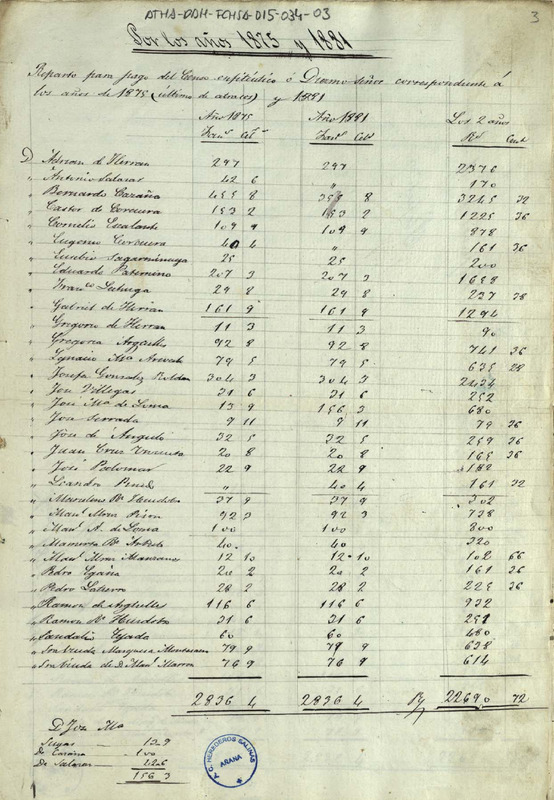 ATHA-DAH-FCHSA-D15-034-03
3
Por los años 1875 y 1881
Reparto para pago del Censo enfitéutico o Diezmo Señor correspondiente á
los años de 1875 (último de atrasos) y 1881
Año 1875 Año 1881 Los 2 años
Fan.s Cel.s Fan.s Cel.s R.s Cent
D. Adrian de Herran 297 297 2376
" Antonio Salazar 42 6 " 170
" Bernardo Garaña 455 8 355 8 3245 32
" Castor de Corcuera 153 2 153 2 1225 36
" Cornelio Escalante 109 9 109 9 878
" Eugenio Corcuera 40 4 " 161 36
" Eusebio Sagarminaga 25 25 200
" Eduardo Paternina 207 3 207 3 1658
" Fran.co 28 8 28 8 227 28
" Gabriel de Herran 161 9 161 9 1294
" Gregorio de Herran 11 3 11 3 90
" Gregoria 92 8 92 8 741 36
" Ygnacio M.a 79 5 79 5 635 28
" Josefa Gonzalez Roldan 304 3 304 3 2434
" Jose Villegas 31 6 31 6 252
" José M.a de Soma 13 9 156 3 680
" Jose Serrada 9 11 9 11 79 36
" José de Angulo 32 5 32 5 259 36
" Juan Cruz 20 8 20 8 165 36
" José Palomar 22 9 22 9 182
" Leandro " 40 4 161 32
" Marcelino R. 37 9 37 9 302
" Man.l 92 3 92 3 738
" Man.l A. de Soma 100 100 800
" 40 40 320
" Man.l Manzanos 12 10 12 10 102 66
" Pedro Egaña 20 2 20 2 161 36
" Pedro 28 2 28 2 225 36
" Ramon de 116 6 116 6 932
" Ramon R. 31 6 31 6 252
" Sandalio Tejada 60 60 480
" Sra Viuda Marquesa 79 9 79 9 638
" Sra Viuda de D. Man.l 76 9 76 9 614
2836 4 2836 4 R.s 22690 72
D. Jose M.a
Suyas 13 9
De Garaña 100
De Salazar 42 6
156 3
A.C. HEREDEROS SALINAS
AÑANA